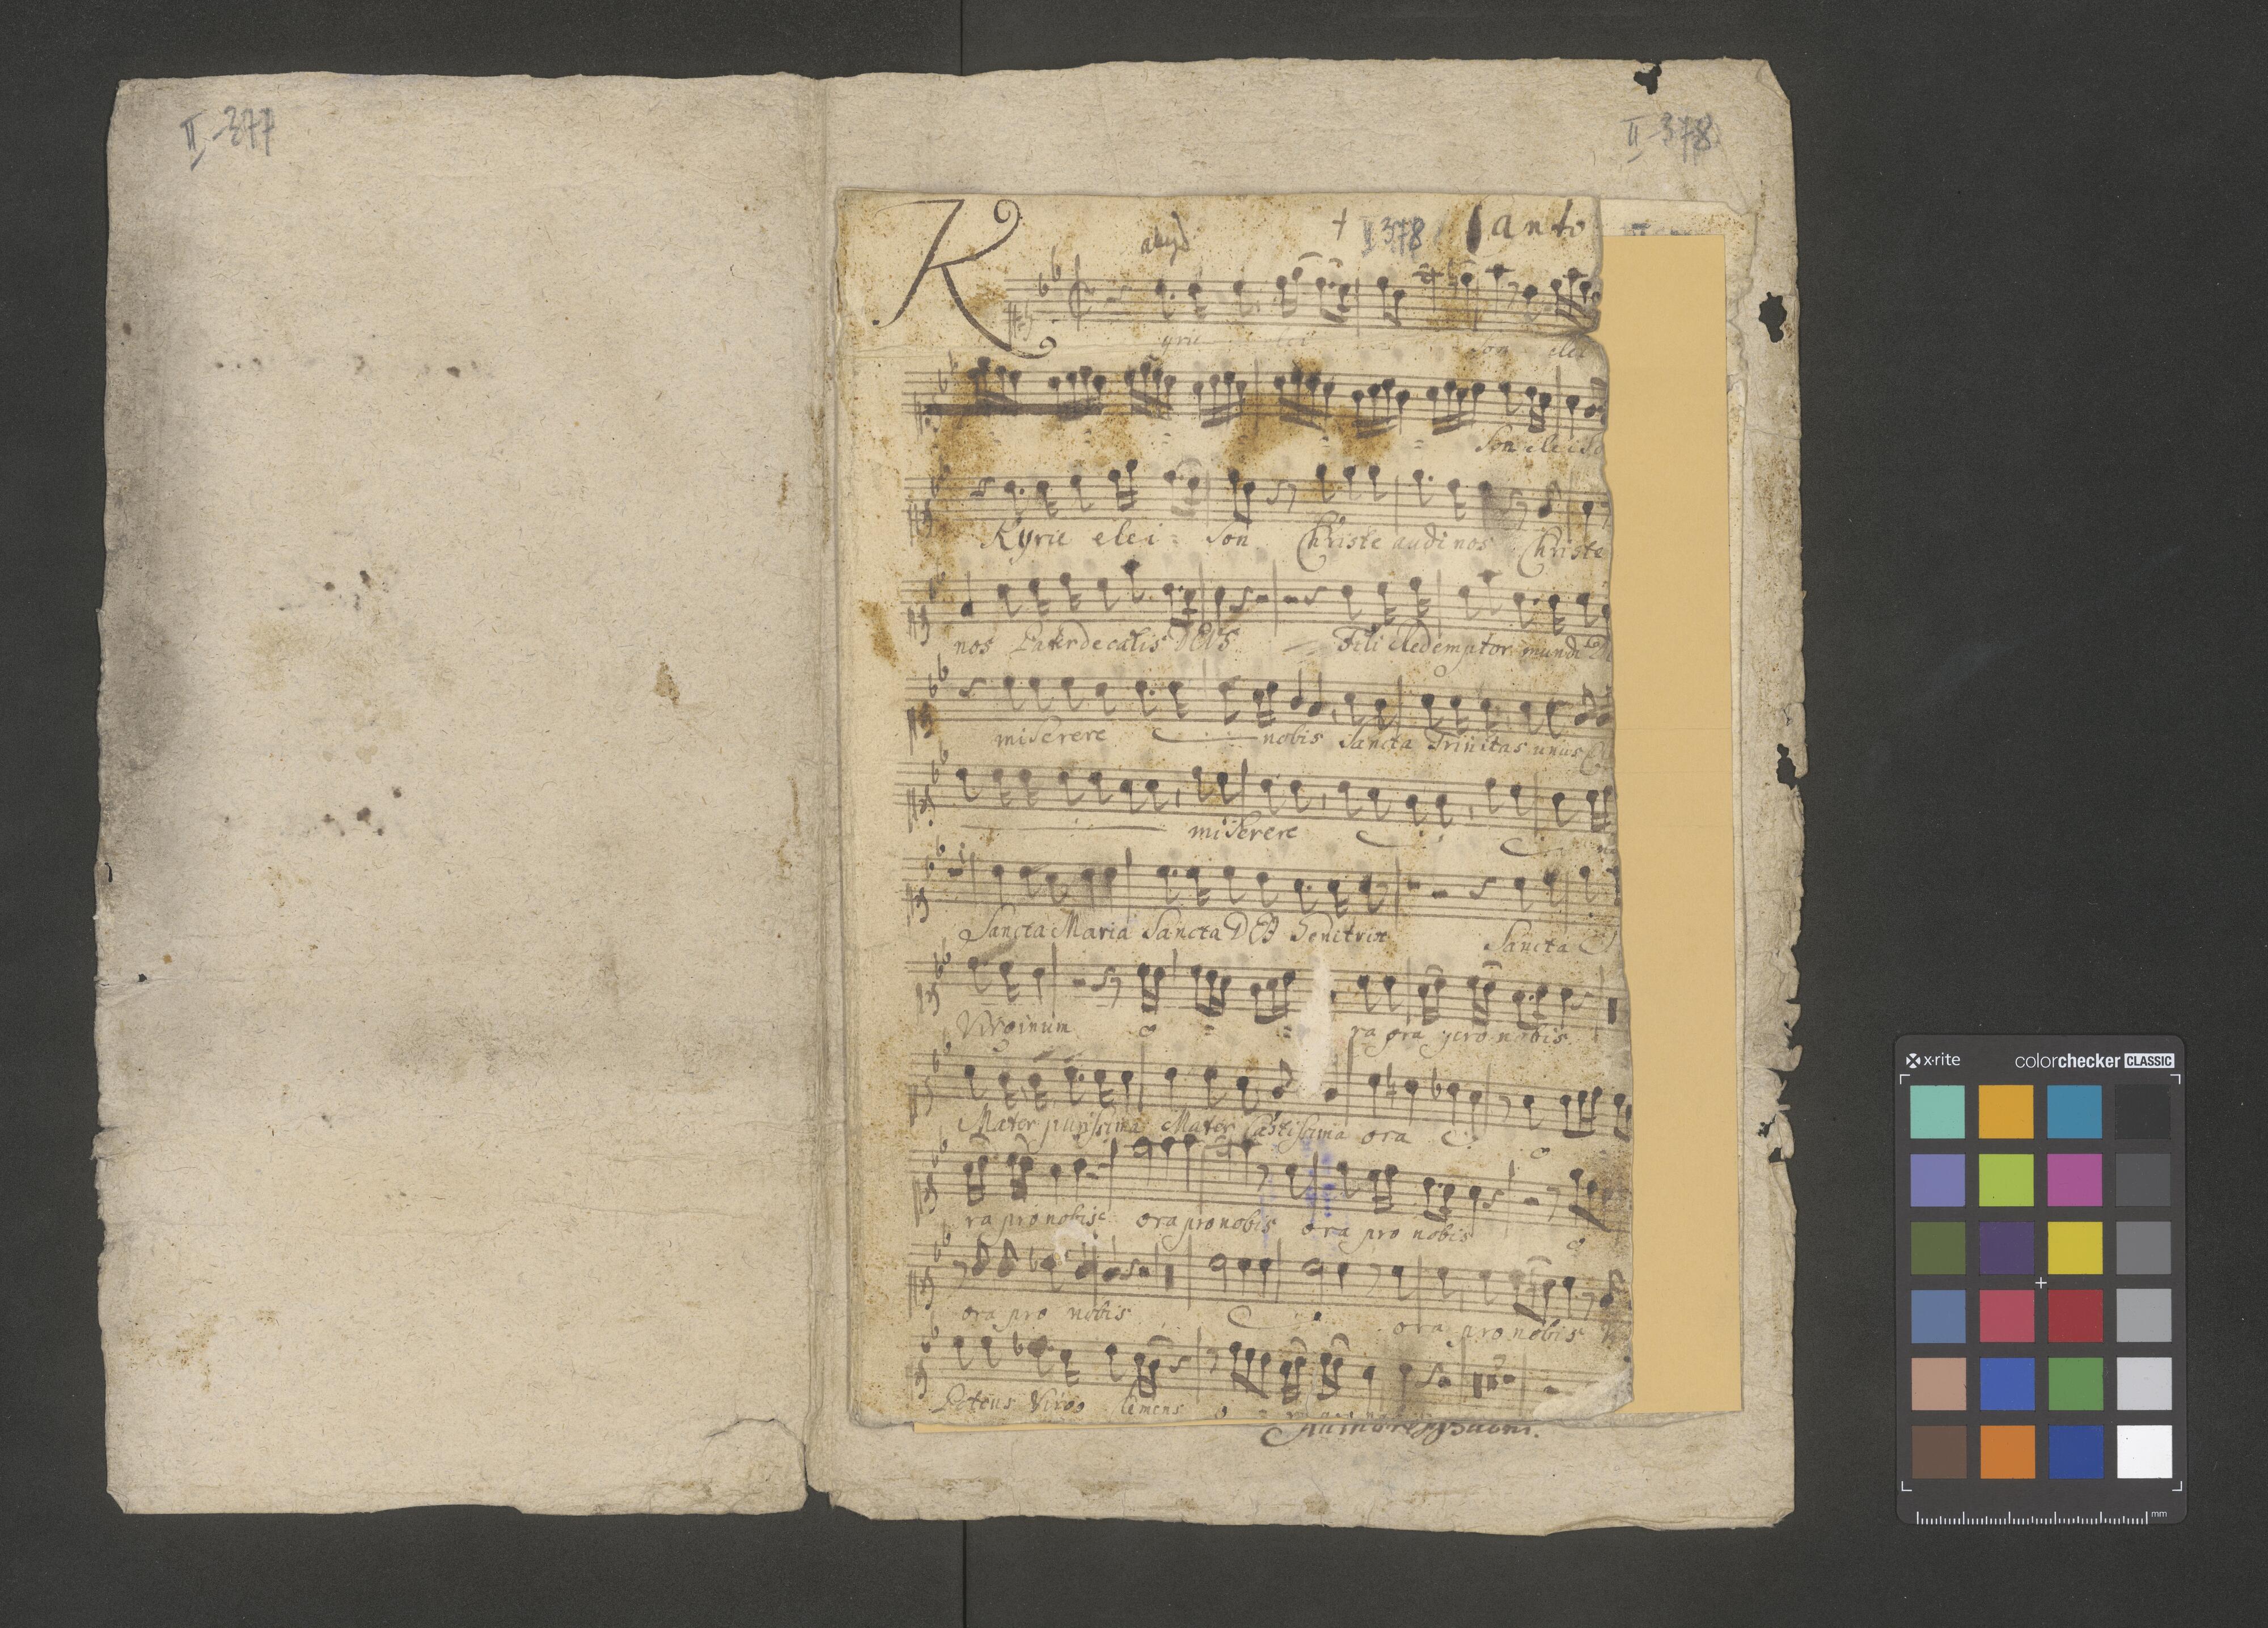 II-377
II-378
II 378 Canto
K
yrie elei son elei
son eleiso
Kyrie elei = son Christe audi nos Christe
nos Pater de caelis DEUS Fili Redemptor mundi
miserere nobis Sancta Trinitas unus
miserere
Sancta Maria Sancta DEI Genitrix Sancta
Virginum o = = ra ora pro nobis.
Mater purissima Mater Castissima ora o
ra pro nobis ora pro nobis ora pro nobis o
ora pro nobis ora pro nobis
Potens Virgo Clemens o
x-rite colorchecker CLASSIC
mm